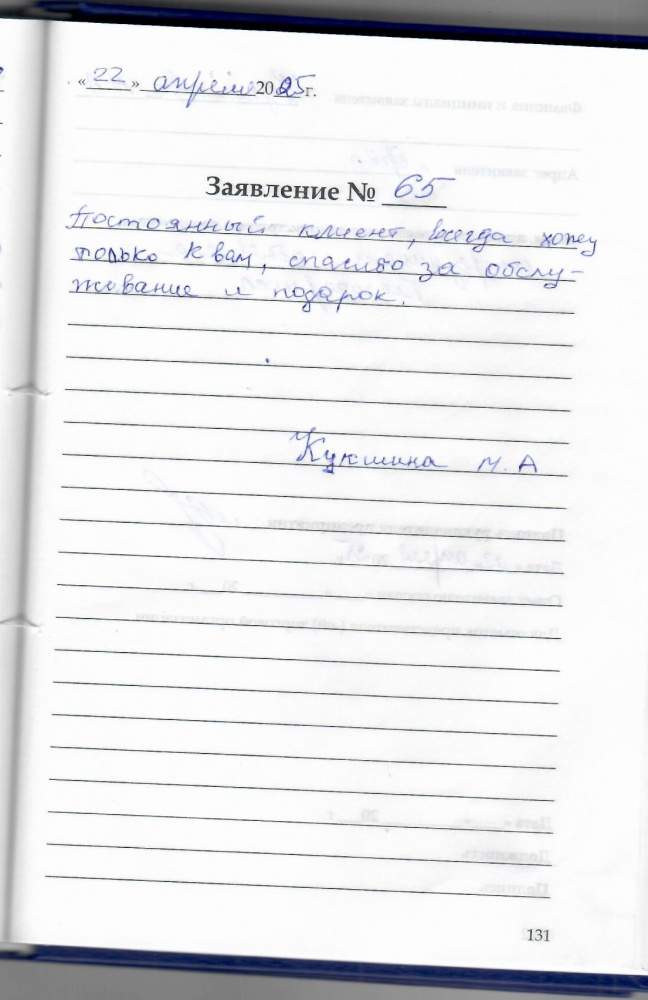 «22» апреля 2025г.
Заявление № 65
Постоянный клиент, всегда хожу
только к вам, спасибо за обслу-
живание и подарок.
Кукшина М.А
131